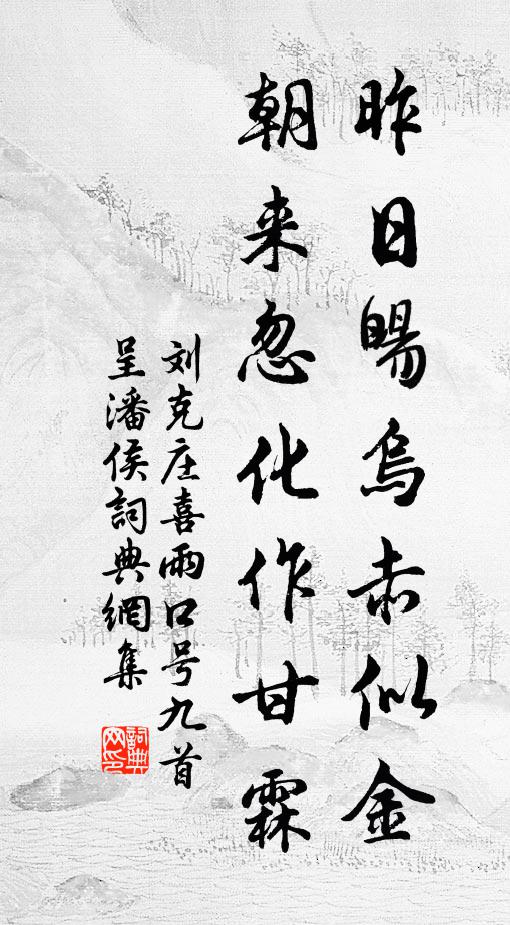 昨日暘烏赤似金
朝来忽化作甘霖
刘克庄喜雨口号九首
呈潘侯詞典網集
詞典
网印